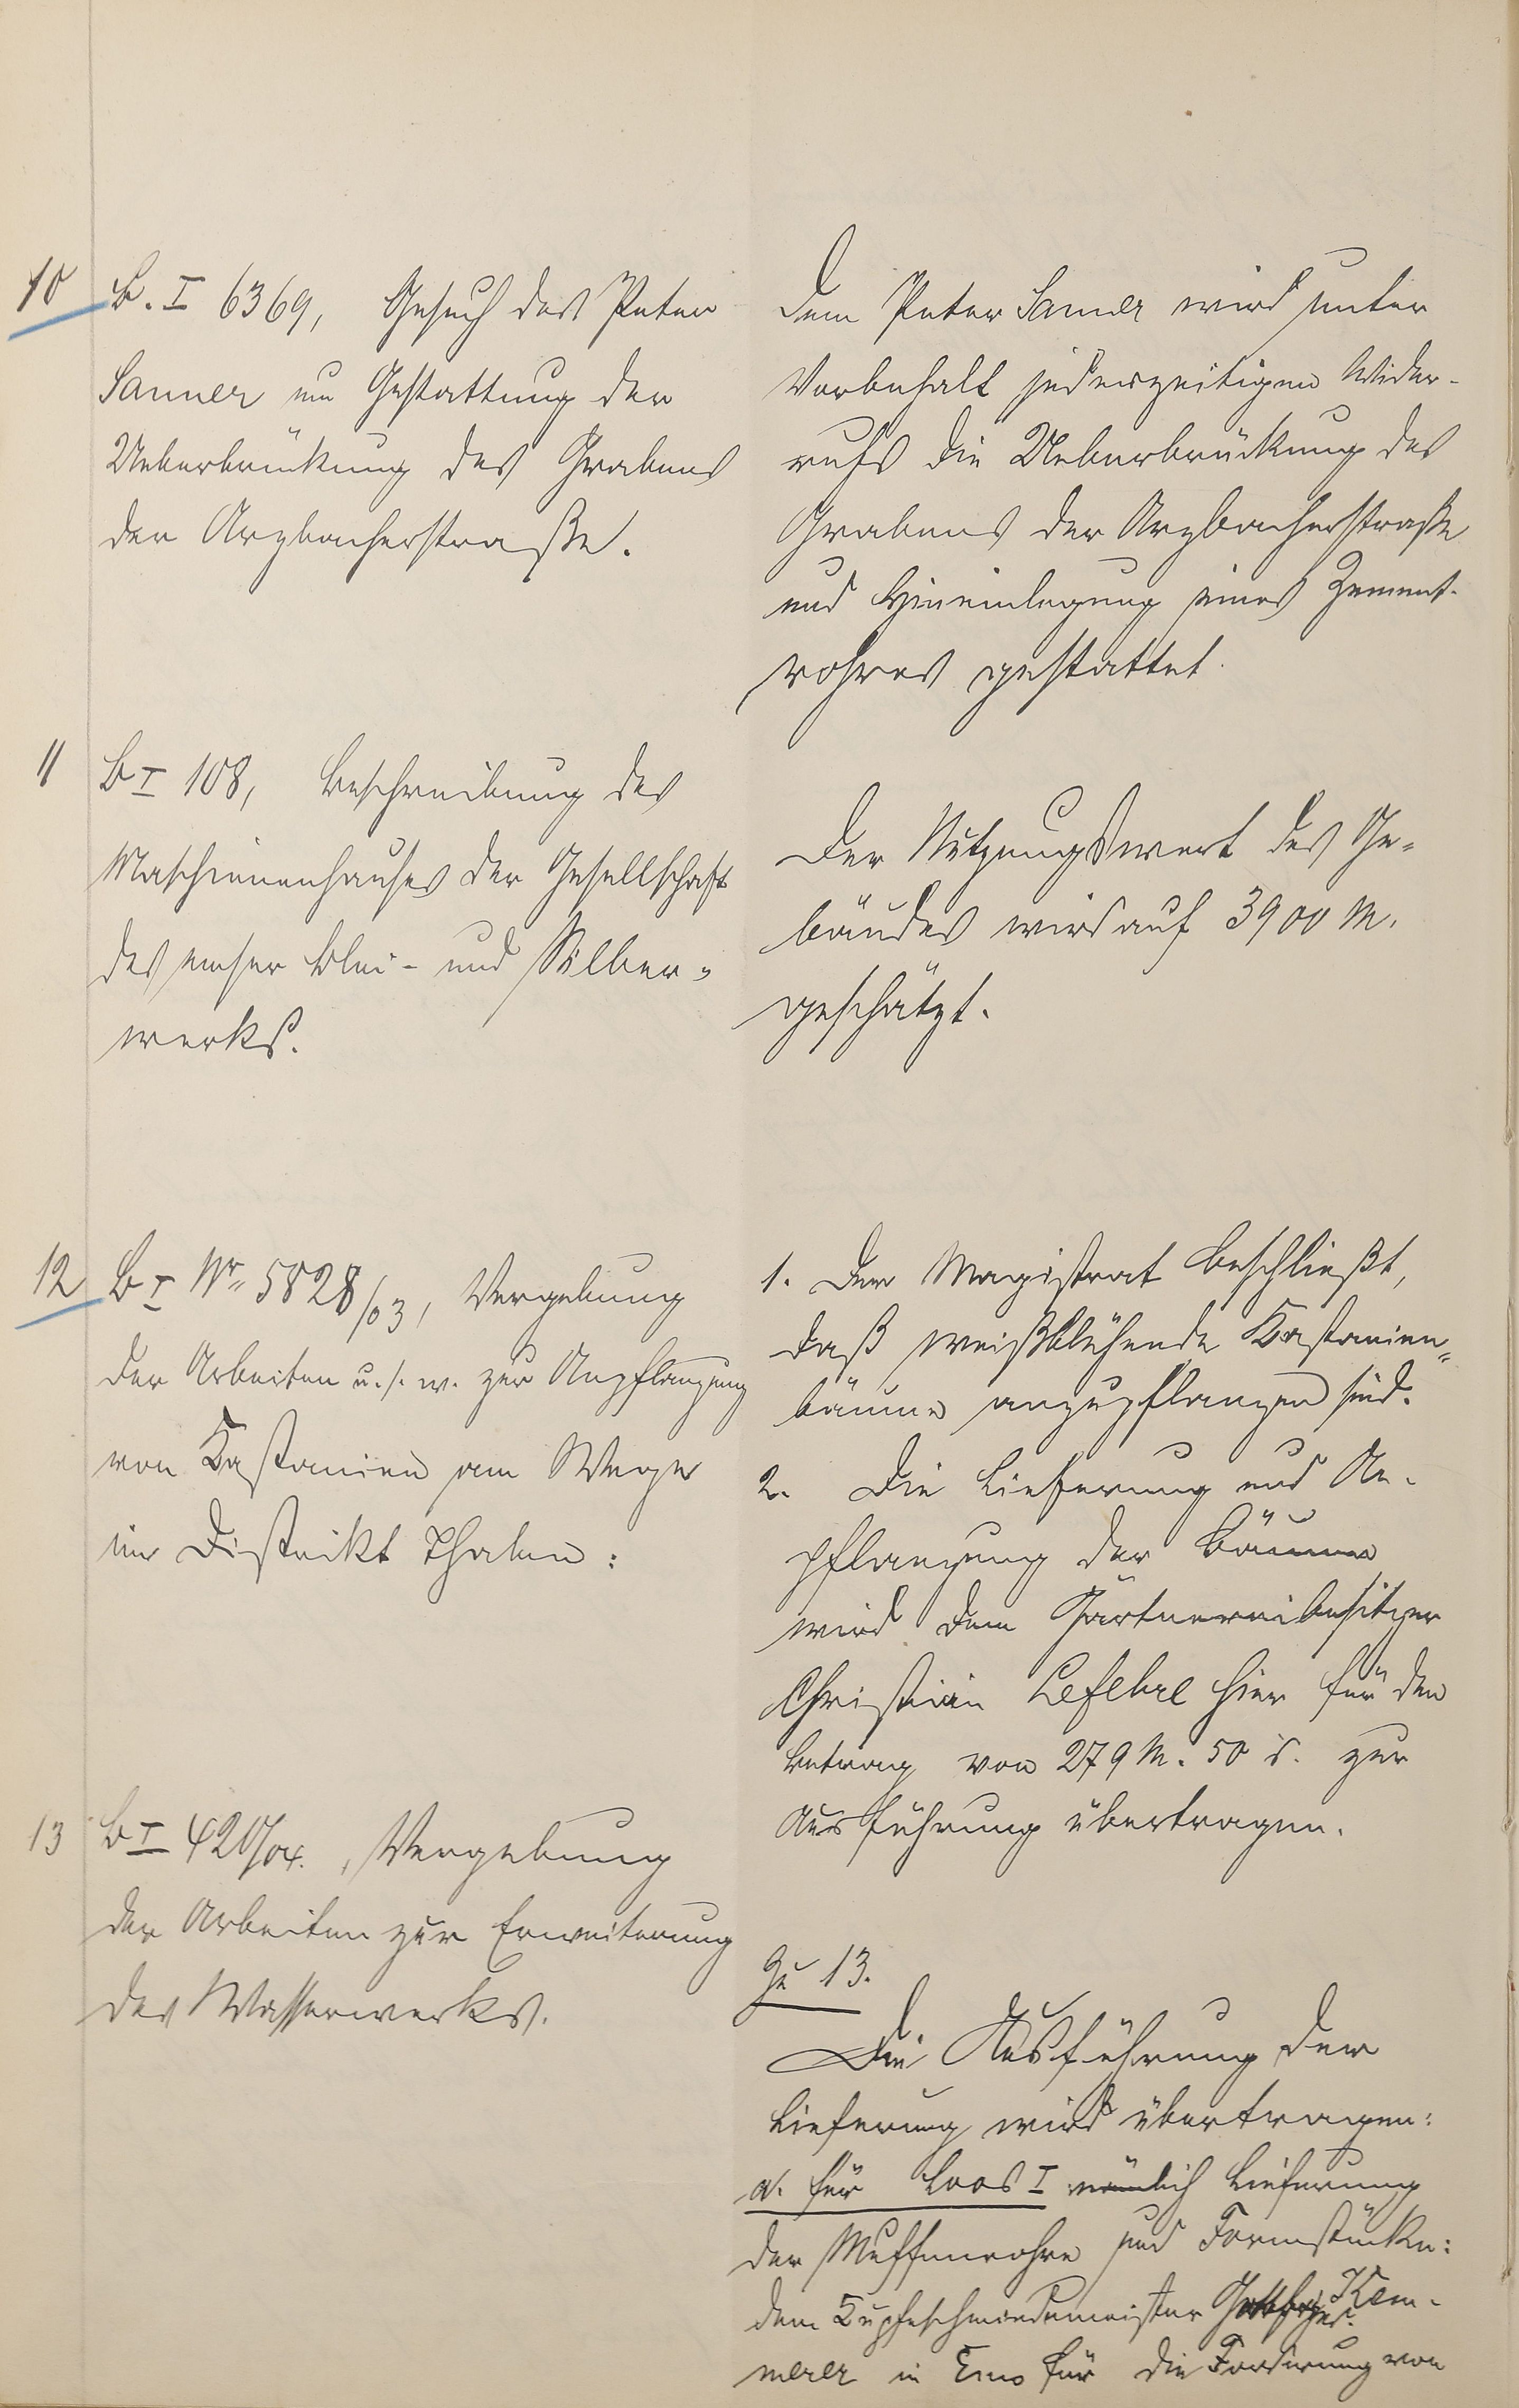 10
B. I 6369, Gesuch des Peter
Sanner um Gestattung der
Ueberbrückung des Grabens
der Arzbacherstraße.
Dem Peter Sanner wird unter
Vorbehalt jederzeitigen Wider-
rufs die Ueberbrückung des
Grabens der Arzbacherstraße
und Hineinlegung eines Zement-
rohres gestattet.
11
B I 108, Beschreibung des
Maschinenhauses der Gesellschaft
des emser Blei- und Silber-
werks.
Der Nutzungswert des Ge-
bäudes wird auf 3900 M.
geschätzt.
12
B I Nr. 5828/03, Vergebung
der Arbeiten u.s.w. zur Anpflanzung
von Kastanien am Wege
im Distrikt Thalen:
1. Der Magistrat beschließt,
daß weißblühende Kastanien-
bäume anzupflanzen sind.
2. Die Lieferung und An-
pflanzung der Bäume
wird dem Gärtnereibesitzer
Christian Lefebre hier für den
Betrag von 279 M. 50 d. zur
Ausführung übertragen.
13
B I 420/04., Vergebung
der Arbeiten zur Erweiterung
des Wasserwerks.
Zu 13.
Die Ausführung der
Lieferung wird übertragen:
a. für Loos I nämlich Lieferung
der Muffenrohre und Formstücke:
dem Kupferschmiedemeister Kem-
merer in Ems für die Forderung von